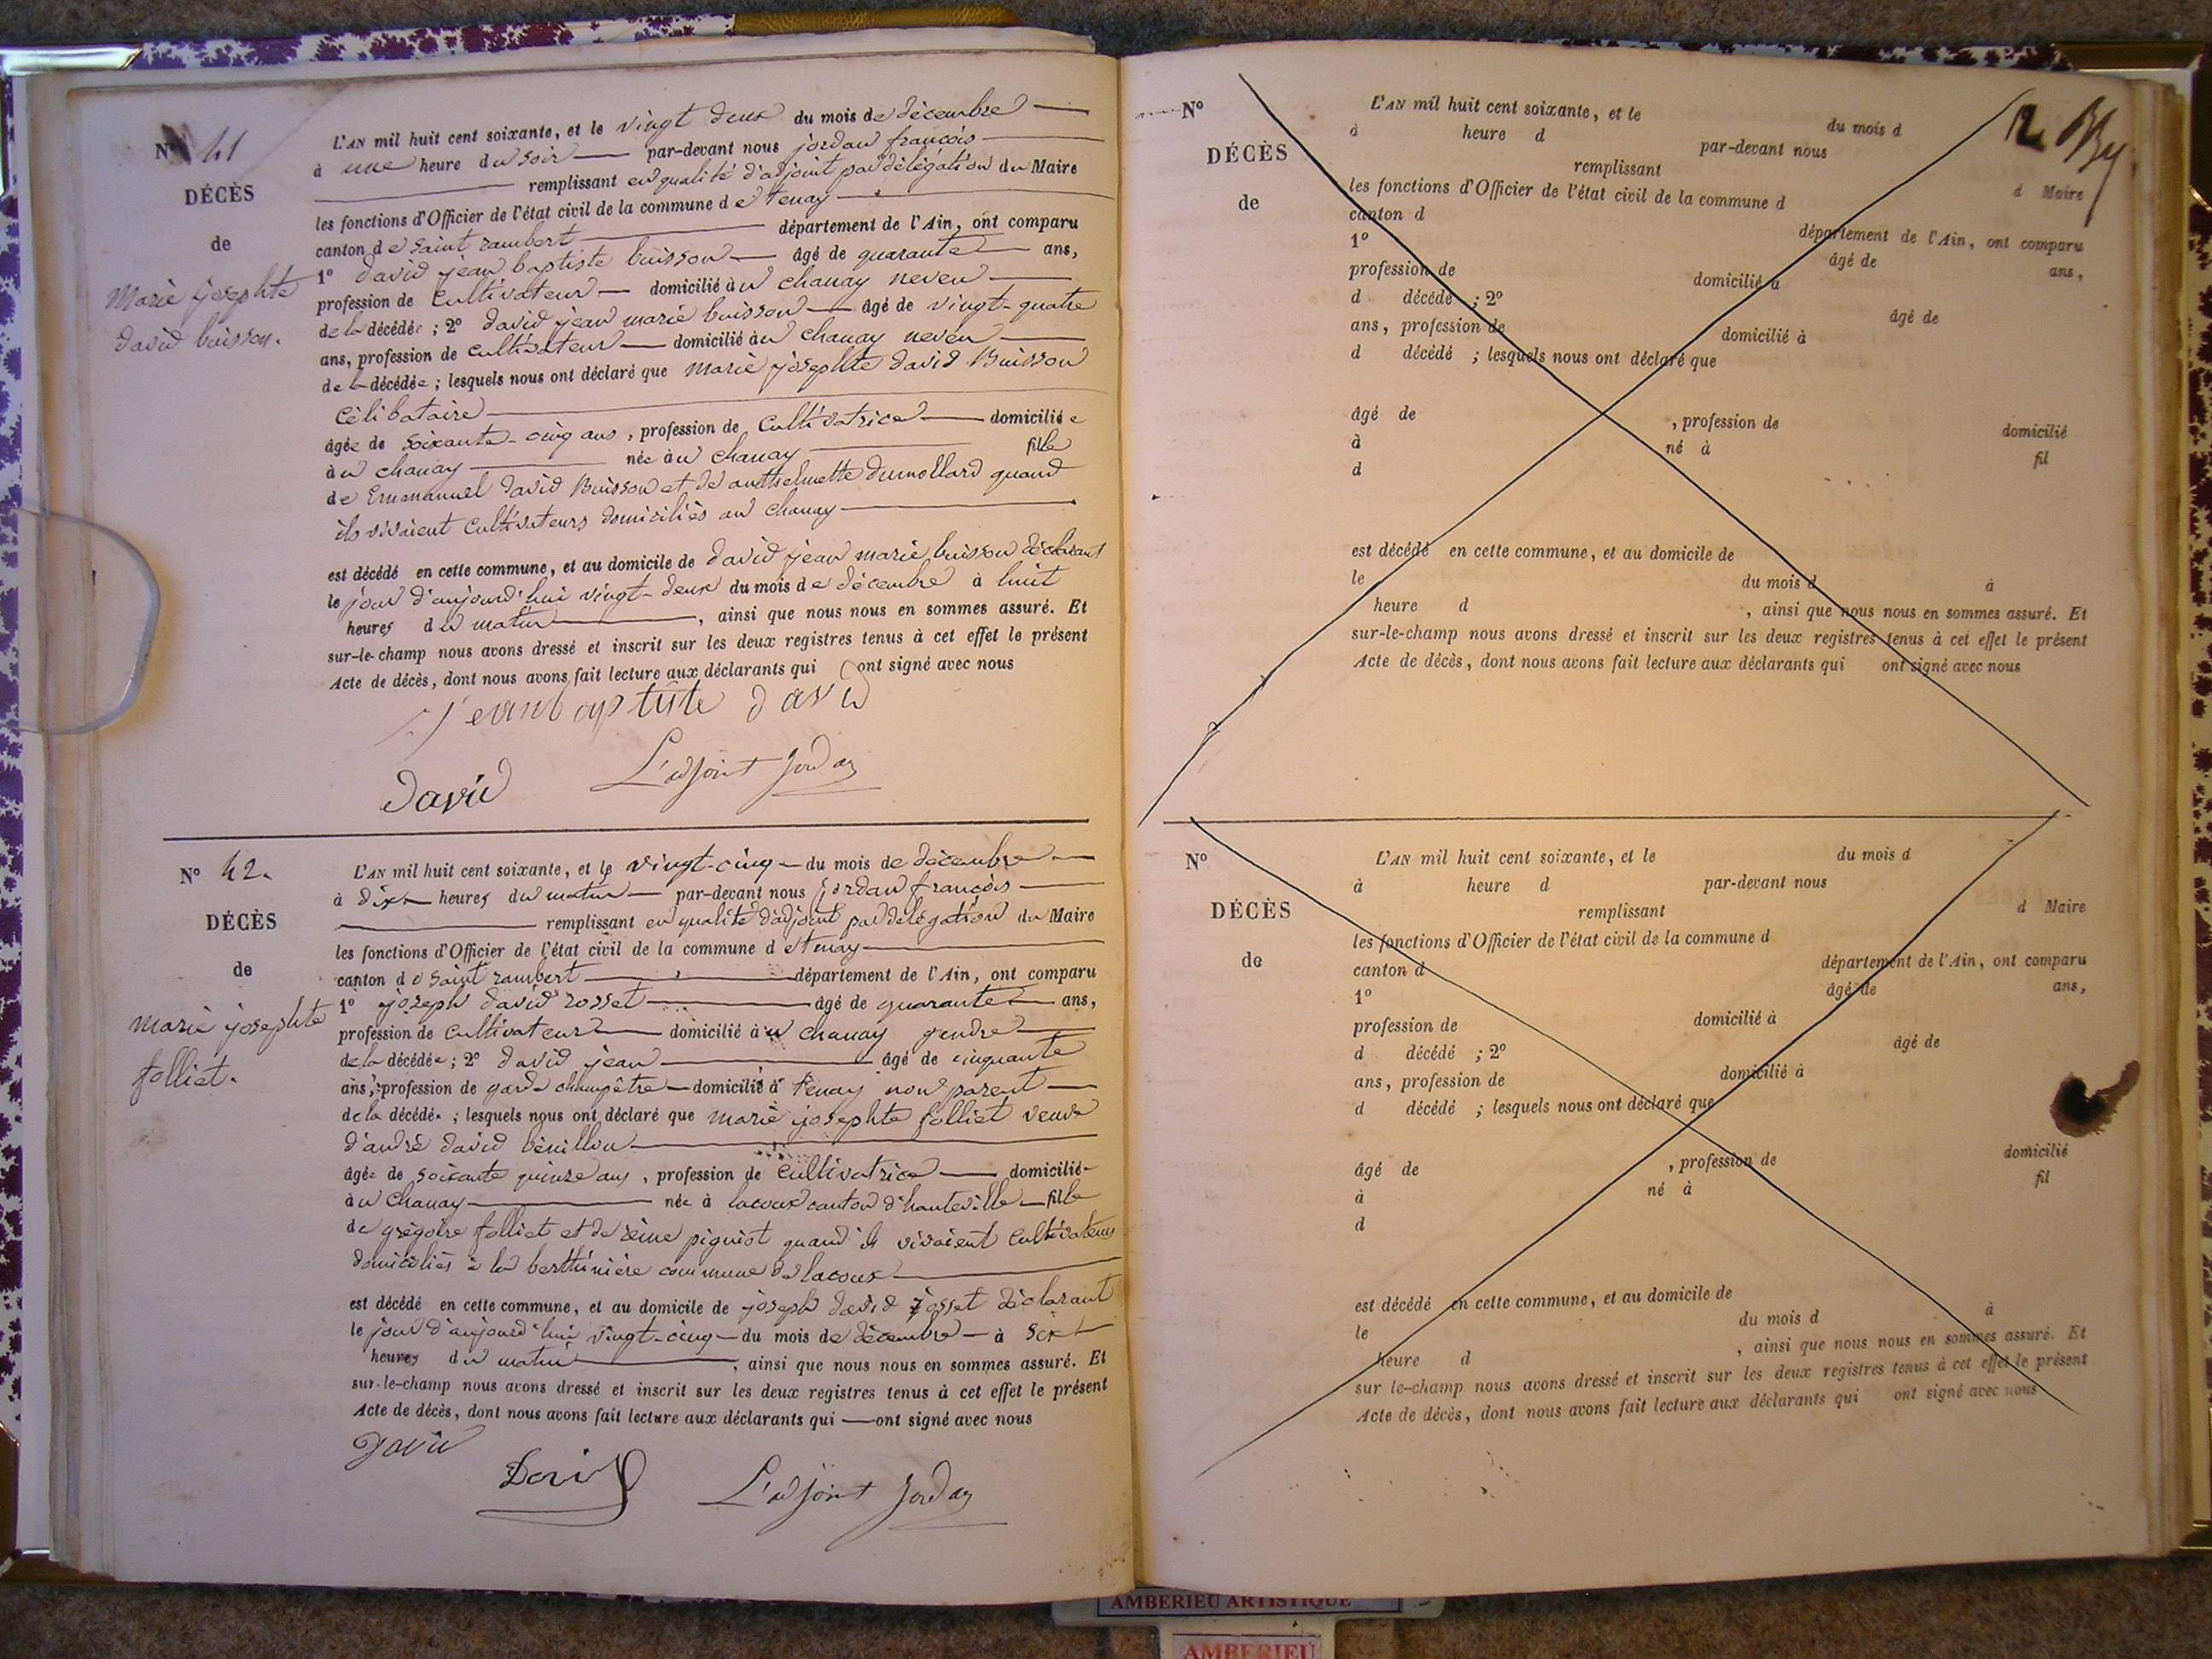 N° 41
DÉCÈS
de
Marie josephte
david buisson.
L'AN mil huit cent soixante, et le vingt deux du mois de décembre
à une heure du soir par-devant nous jordan françois
remplissant en qualité d'adjoint par délégation du Maire
les fonctions d'Officier de l'état civil de la commune de tenay
canton de saint rambert département de l'Ain, ont comparu
1° david jean baptiste buisson âgé de quarante ans,
profession de cultivateur domicilié à u chanay neveu
de la décédée ; 2° david jean marie buisson âgé de vingt-quatre
ans, profession de cultivateur domicilié au chanay neveu
de la décédée ; lesquels nous ont déclaré que Marie josephte david Buisson
célibataire
âgée de soixante-cinq ans, profession de cultivatrice domiciliée
au chanay née au chanay fille
de Emmanuel david Buisson et de anthelmette dumollard quand
ils vivaient cultivateurs domiciliés au chanay
est décédé en cette commune, et au domicile de david jean marie buisson déclarant
le jour d'aujourd'hui vingt-deux du mois de décembre à huit
heures du matin , ainsi que nous nous en sommes assuré. Et
sur-le-champ nous avons dressé et inscrit sur les deux registres tenus à cet effet le présent
Acte de décès, dont nous avons fait lecture aux déclarants qui ont signé avec nous
jeanbaptiste david
David L'adjoint Jordan
N° 42.
DÉCÈS
de
marie josephte
folliet.
L'AN mil huit cent soixante, et le vingt-cinq du mois de décembre
à dix heures du matin par-devant nous jordan françois
remplissant en qualité d'adjoint par délégation du Maire
les fonctions d'Officier de l'état civil de la commune de tenay
canton de saint rambert département de l'Ain, ont comparu
1° joseph david rosset âgé de quarante ans,
profession de cultivateur domicilié à u chanay gendre
de la décédée ; 2° david jean âgé de cinquante
ans, profession de garde champêtre domicilié à tenay non parent
de la décédée ; lesquels nous ont déclaré que marie josephte folliet veuve
d'andré david
âgée de soixante quinze ans, profession de cultivatrice domiciliée
au chanay née à lacoux canton d'hauteville fille
de grégoire folliet et de reine pigniot quand ils vivaient cultivateurs
domiciliés à la commune de lacoux
est décédé en cette commune, et au domicile de joseph david rosset déclarant
le jour d'aujourd'hui vingt-cinq du mois de décembre à six
heures du matin , ainsi que nous nous en sommes assuré. Et
sur-le-champ nous avons dressé et inscrit sur les deux registres tenus à cet effet le présent
Acte de décès, dont nous avons fait lecture aux déclarants qui ont signé avec nous
David
David L'adjoint Jordan
12
N°
DÉCÈS
de
L'AN mil huit cent soixante, et le du mois d
à heure d par-devant nous
remplissant d Maire
les fonctions d'Officier de l'état civil de la commune d
canton d département de l'Ain, ont comparu
1° âgé de ans,
profession de domicilié à
d décédé ; 2° âgé de
ans, profession de domicilié à
d décédé ; lesquels nous ont déclaré que
âgé de , profession de domicilié
à né à fil
d
est décédé en cette commune, et au domicile de
le du mois d à
heure d , ainsi que nous nous en sommes assuré. Et
sur-le-champ nous avons dressé et inscrit sur les deux registres tenus à cet effet le présent
Acte de décès, dont nous avons fait lecture aux déclarants qui ont signé avec nous
N°
DÉCÈS
de
L'AN mil huit cent soixante, et le du mois d
à heure d par-devant nous
remplissant d Maire
les fonctions d'Officier de l'état civil de la commune d
canton d département de l'Ain, ont comparu
1° âgé de ans,
profession de domicilié à
d décédé ; 2° âgé de
ans, profession de domicilié à
d décédé ; lesquels nous ont déclaré que
âgé de , profession de domicilié
à né à fil
d
est décédé en cette commune, et au domicile de
le du mois d à
heure d , ainsi que nous nous en sommes assuré. Et
sur le-champ nous avons dressé et inscrit sur les deux registres tenus à cet effet le présent
Acte de décès, dont nous avons fait lecture aux déclarants qui ont signé avec nous
AMBERIEU ARTISTIQUE
AMBERIEU